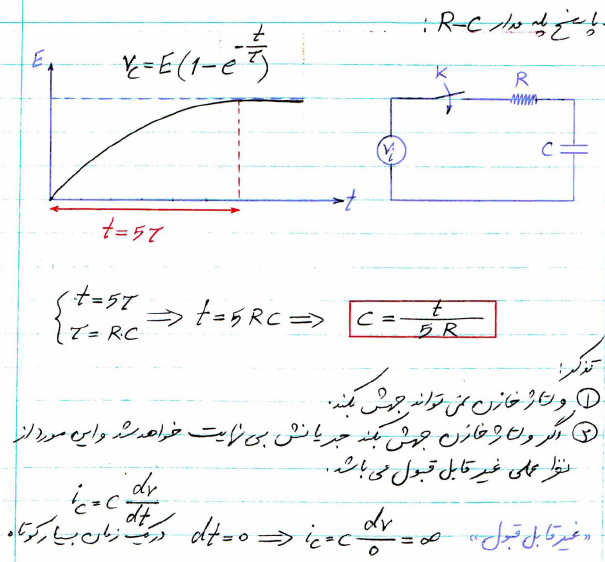 پاسخ پله مدار R-C :
E
V_c = E(1-e^{-\frac{t}{τ}})
K
R
V_i
C
t
t=5τ
{ t=5τ
τ=R.C ⇒ t=5RC ⇒ C = \frac{t}{5R}
تذکر:
① ولتاژ خازن نمی تواند جهش بکند.
② اگر ولتاژ خازن جهش بکند جریانش بی نهایت خواهد شد و این مورد از
نظر عملی غیر قابل قبول می باشد.
i_c = c \frac{dv}{dt}
در یک زمان بسیار کوتاه dt=0 ⇒ i_c = c \frac{dv}{0} = ∞ «غیر قابل قبول»